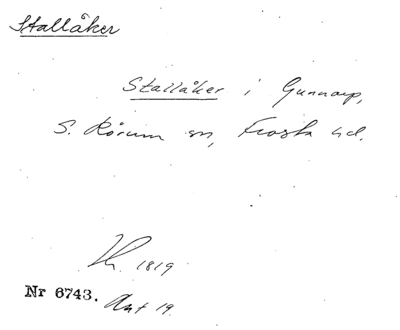 Stallåker
Stallåker i Gunnarp,
S. Rörum sn, Frosta hd.
1819
Nr 6743. Akt 19.